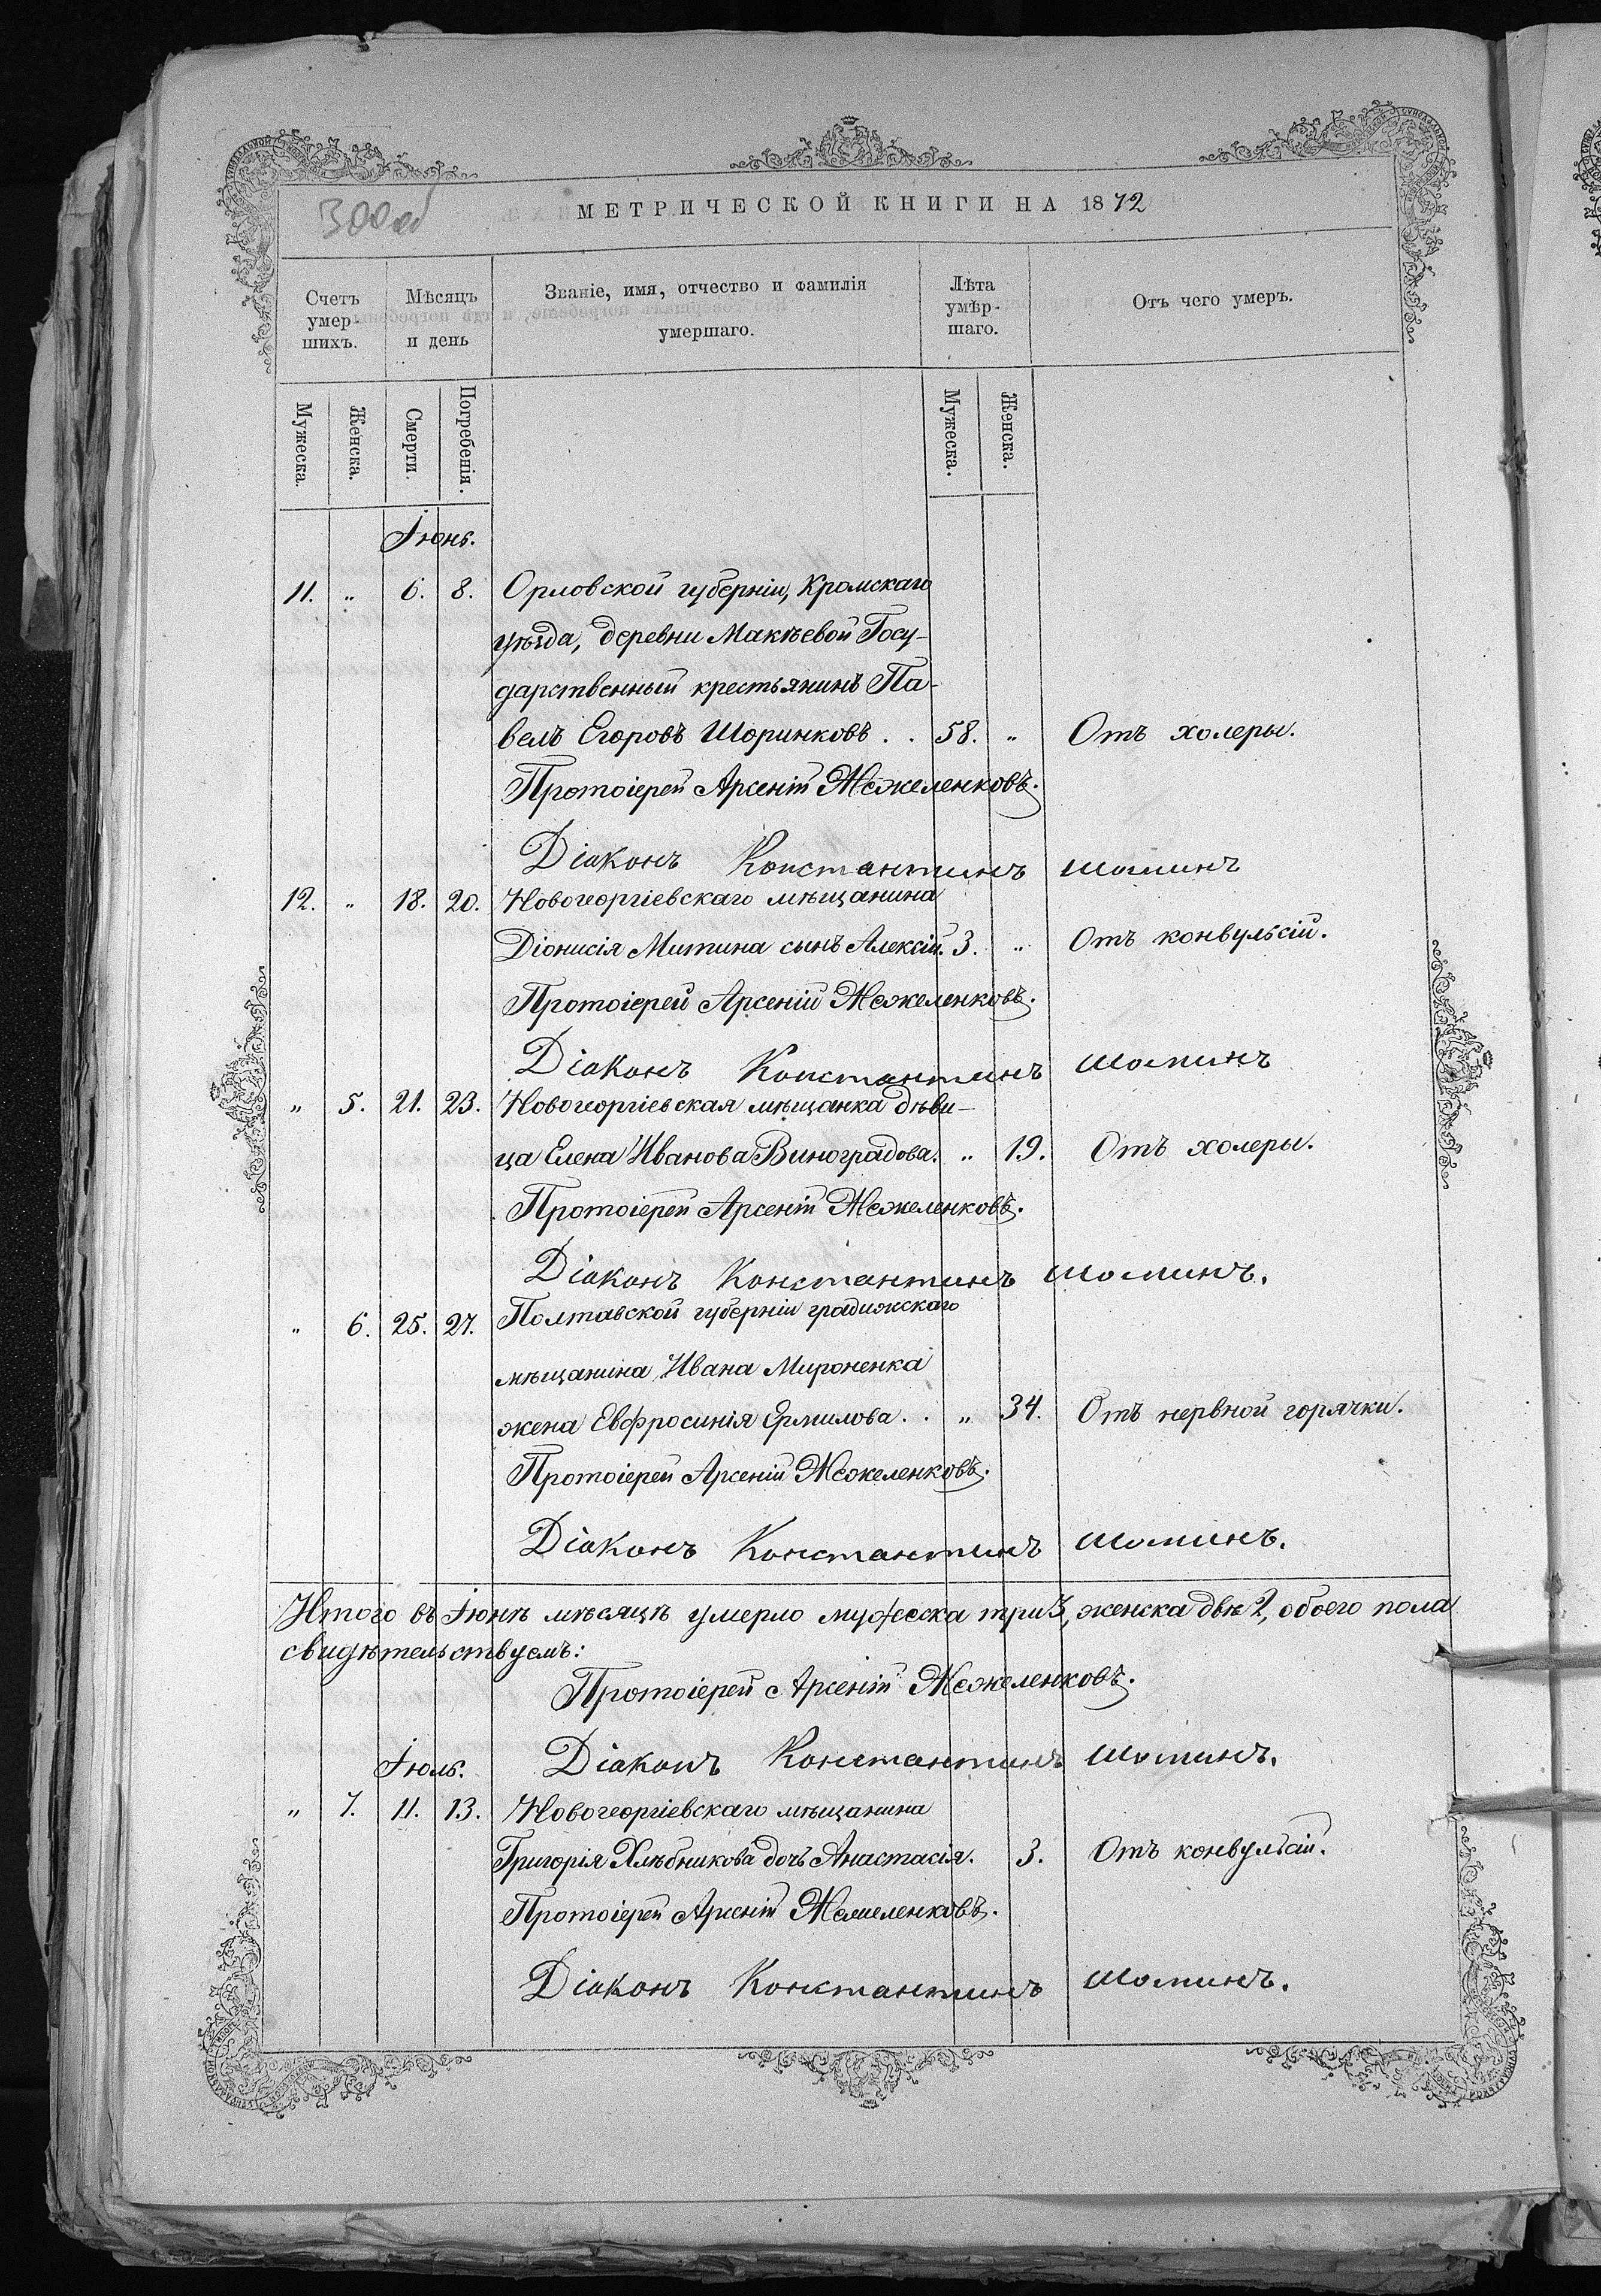 300 об
МЕТРИЧЕСКОЙ КНИГИ НА 1872
Счетъ умер-шихъ.
Мѣсяцъ и день
Званіе, имя, отчество и фамилія умершаго.
Лѣта умѣр-шаго.
Отъ чего умеръ.
Мужеска. Женска. Смерти. Погребенія. Мужеска. Женска.
Іюнь.
11. „ 6. 8. Орловской губерніи, Кромскаго
уѣзда, деревни Макѣевой Госу-
дарственный крестьянинъ Па-
велъ Егоровъ Шоринковъ . . 58. „ Отъ холеры.
Протоіерей Арсеній Межеленковъ.
Діаконъ Константинъ Шоминъ
12. „ 18. 20. Новогеоргіевскаго мѣщанина
Діонисія Митина сынъ Алексій. 3. „ Отъ конвульсій.
Протоіерей Арсеній Межеленковъ.
Діаконъ Константинъ Шоминъ
„ 5. 21. 23. Новогеоргіевская мѣщанка дѣви-
ца Елена Иванова Виноградова. „ 19. Отъ холеры.
Протоіерей Арсеній Межеленковъ.
Діаконъ Константинъ Шоминъ.
„ 6. 25. 27. Полтавской губерніи градижскаго
мѣщанина Ивана Мироненка
жена Евфросинія Ермилова . . „ 34. Отъ нервной горячки.
Протоіерей Арсеній Межеленковъ.
Діаконъ Константинъ Шоминъ.
Итого въ Іюнѣ мѣсяцѣ умерло мужеска три 3, женска двѣ 2, обоего пола
свидѣтельствуемъ:
Протоіерей Арсеній Межеленковъ.
Діаконъ Константинъ Шоминъ.
Іюль.
„ 7. 11. 13. Новогеоргіевскаго мѣщанина
Григорія Хлѣбникова дочь Анастасія. 3. Отъ конвульсій.
Протоіерей Арсеній Межеленковъ.
Діаконъ Константинъ Шоминъ.